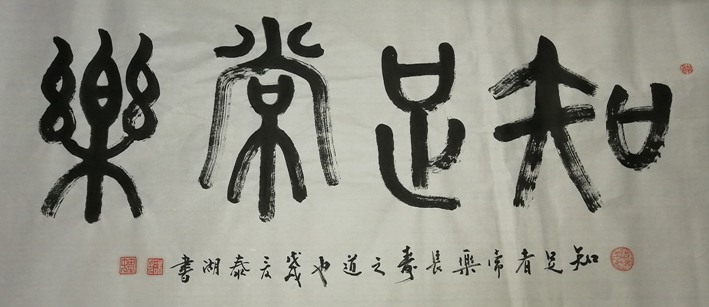 知足常樂
知足者常樂長壽之道也戊戌冬泰湖書